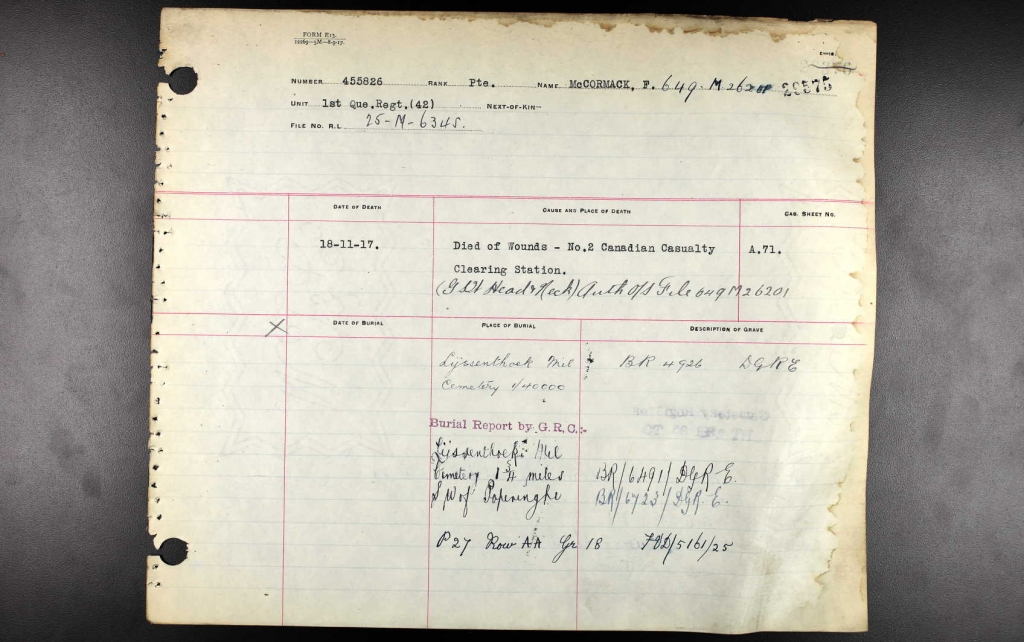 FORM E13.
NUMBER 455826 RANK Pte. NAME McCORMACK, F. 649-M 26201 29575
UNIT 1st Que.Regt.(42) NEXT-OF-KIN
FILE NO. R.L. 25-M-6345.
DATE OF DEATH CAUSE AND PLACE OF DEATH CAS. SHEET NO.
18-11-17. Died of Wounds - No.2 Canadian Casualty A.71.
Clearing Station.
(GSW Head & Neck) Auth O/S File 649 M 26201
X DATE OF BURIAL PLACE OF BURIAL DESCRIPTION OF GRAVE
Lijssenthoek Mil BR 4926 DGRE
Cemetery 1/40000
Burial Report by G.R.C.:-
Lijssenthoek Mil
Cemetery 1¾ miles BR/6491/DGR E.
S W of Poperinghe BR/6723/DGR.E.
P 27 Row AA Gr 18 /5161/25